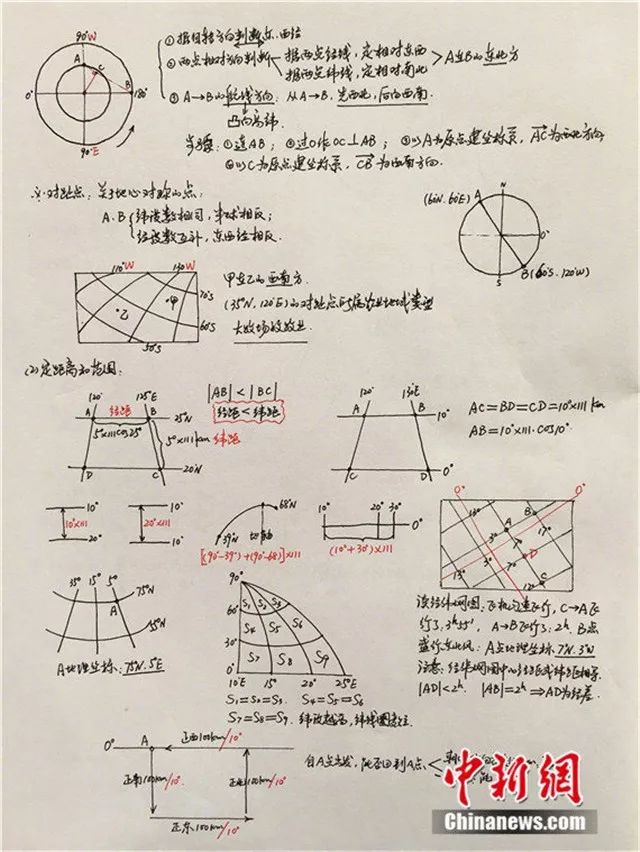 90°W
A
C
B
0°
180°
90°E
①据自转方向判断东.西经
②两点相对方向判断
据两点经线,定相对东西
据两点纬线,定相对南北
A在B的东北方
③A→B的航线方向:从A→B,先西北,后向西南.
凸向高纬.
步骤:①连AB;②过O作OC⊥AB;③以A为原点建坐标系,AC为西北方向
④以C为原点建坐标系,CB为西南方向.
对趾点:关于地心对称的点:
A.B
纬度数相同,半球相反;
经度数互补,东西经相反.
(60°N.60°E)
A
N
0°
S
B(60°S.120°W)
110°W
130°W
甲
乙
70°S
60°S
50°S
甲在乙的西南方.
(35°N,120°E)的对趾点所属农业地域类型
大牧场放牧业.
(2)定距离和范围:
120°
125°E
A
经距
B
25°N
5°×111cos25°
5°×111km
纬距
D
C
20°N
|AB|<|BC|
经距<纬距
120°
130°E
A
B
10°
C
D
0°
AC=BD=CD=10°×111km
AB=10°×111·cos10°
10°
10°×111
20°
10°
20°×111
10°
68°N
39°N
[(90°-39°)+(90°-68)]×111
10°
20°
30°
0°
(10°+30°)×111
0°
0°
13°
B
A
3°
17°
3°
7°
D
13°
7°
12°
C
35°
15°
5°
75°N
A
55°N
A地理坐标:75°N.5°E
90°
60°
30°
0°
S1
S2
S3
S4
S5
S6
S7
S8
S9
10°E
15°
20°
25°E
S1=S2=S3. S4=S5=S6
S7=S8=S9.
A点地理坐标7°N.3°W
|AD|<2h |AB|=2h⇒AD为经差.
0°
A
正西100km/10°
正南100km/10°
正北100km/10°
正东100km/10°
自A点出发,能否回到A点
中新网
Chinanews.com